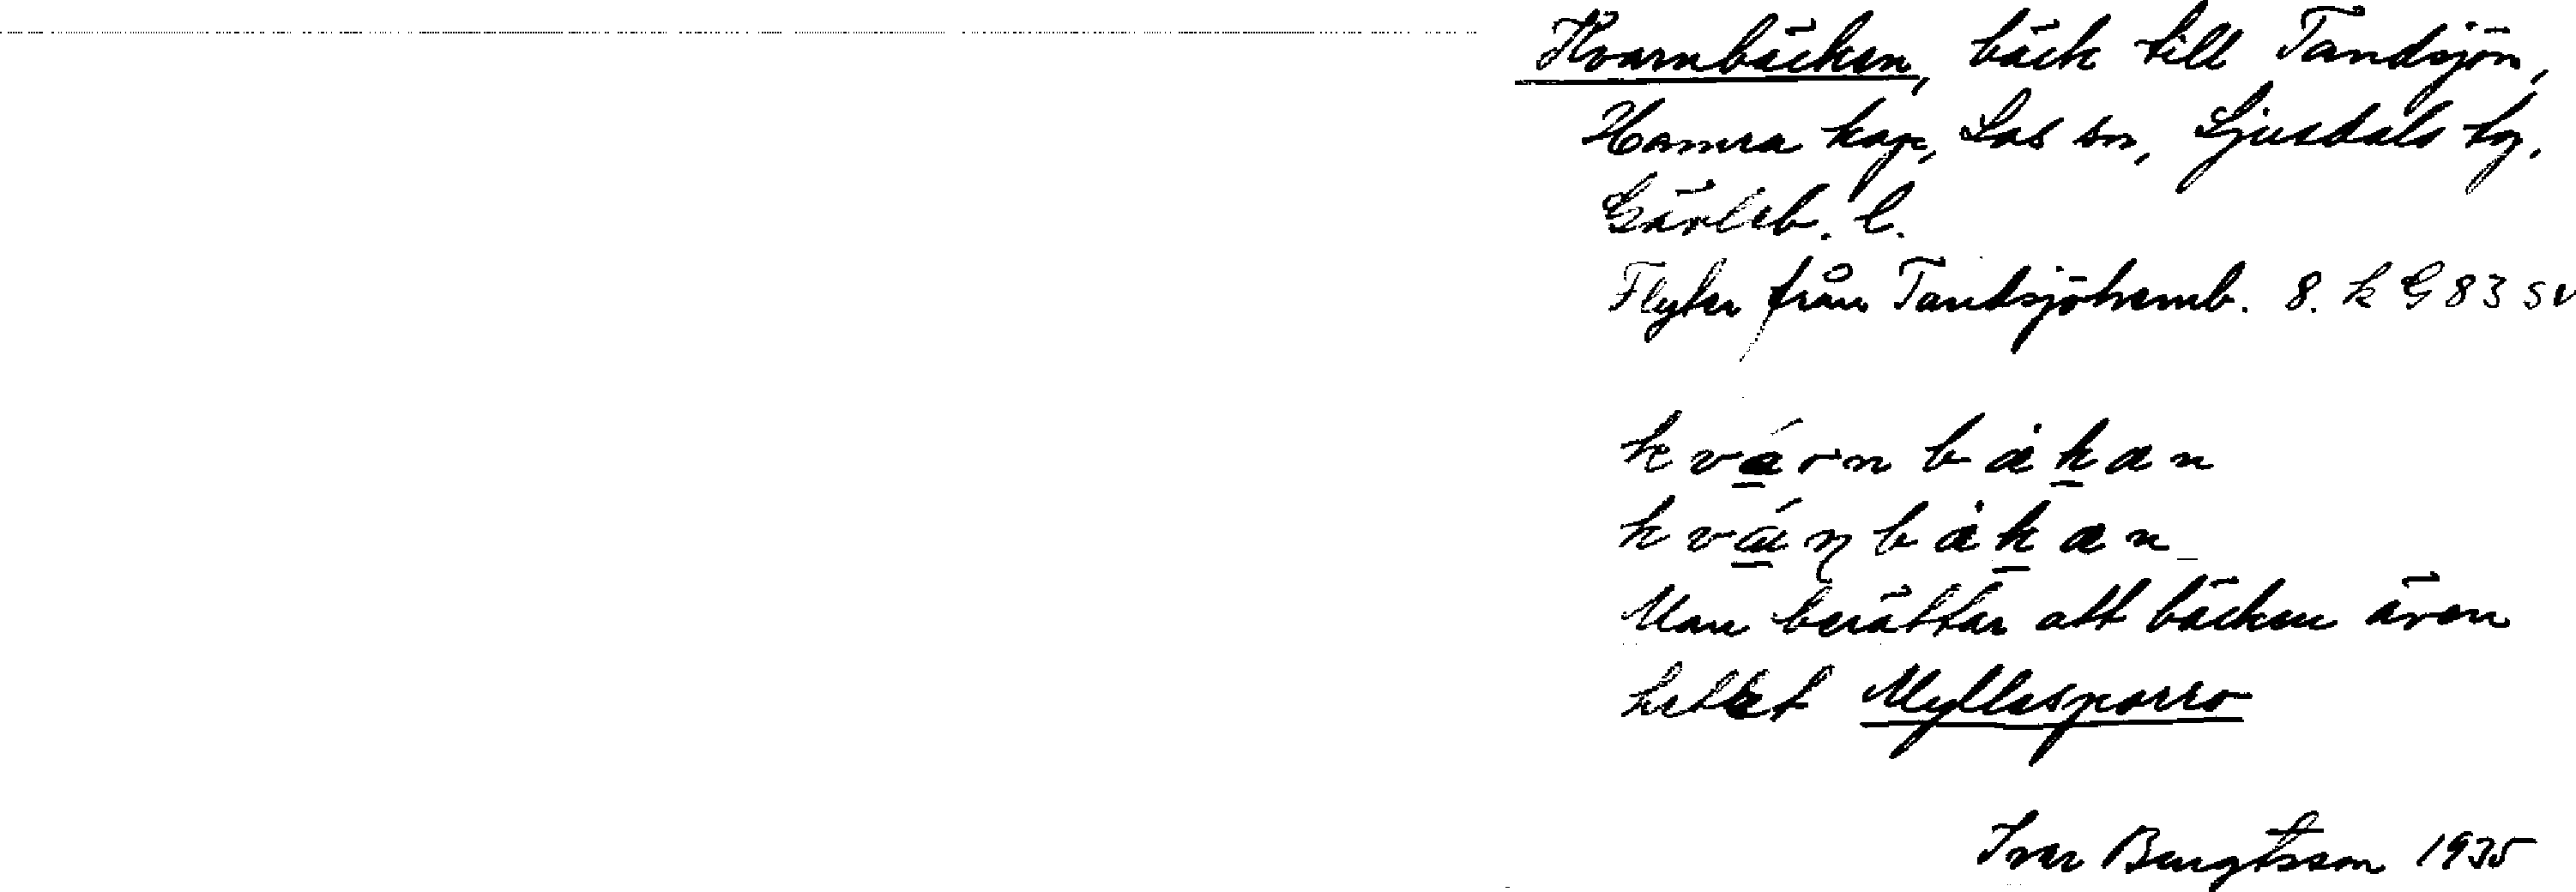 Kvarnbäcken, bäck till Tandsjön,
Hamra kap, Los sn, Ljusdals tg.
Gävleb. l.
Flyter från Tandsjötremb. 8. k G 83 SV
kvárnbäkan
kváṇbäkan
Man berättar att bäcken även
hettet Myllesporro
Ivar Bengtsson 1935